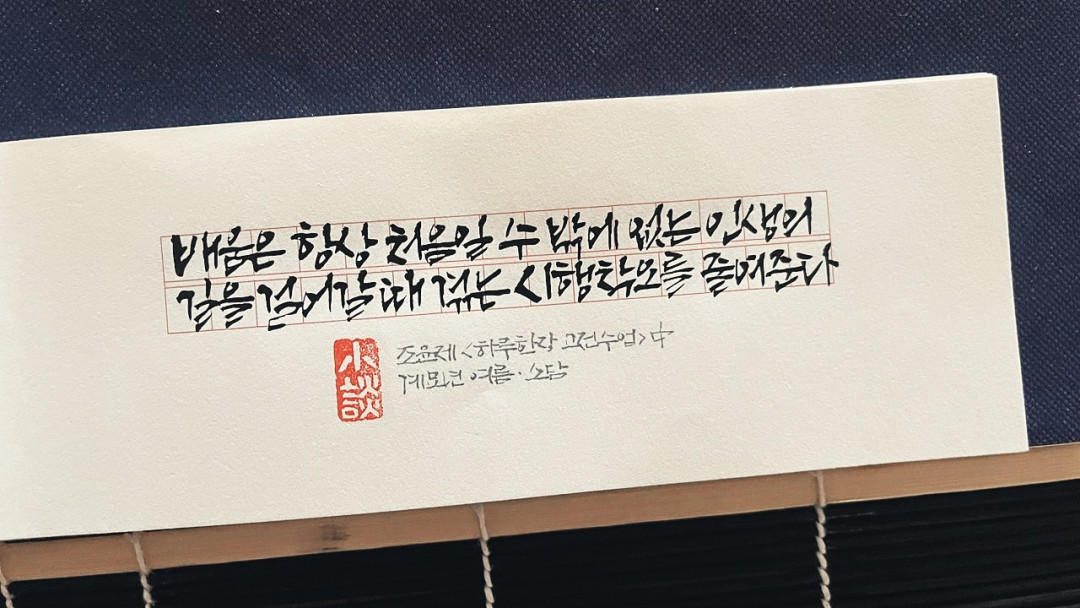 배움은 항상 처음일 수 밖에 없는 인생의
길을 걸어갈 때 겪는 시행착오를 줄여준다
조윤제 <하루 한 장 고전수업> 中
계묘년 여름 · 소담
小談